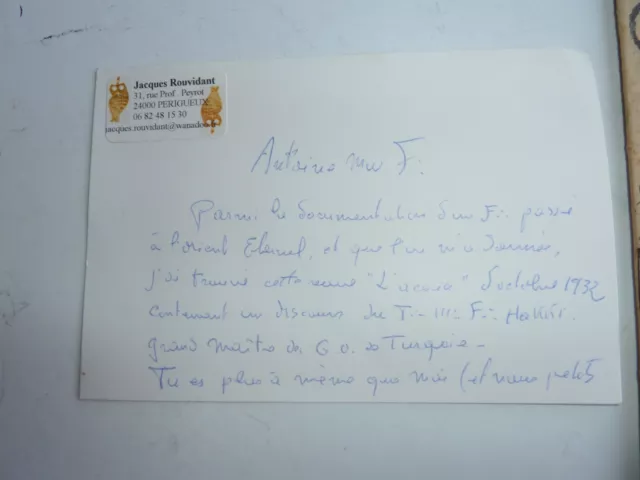 Jacques Rouvidant
31, rue Prof Peyrot
24000 PERIGUEUX
06 82 48 15 30
jacques.rouvidant@wanadoo.fr
Antoine mon F∴
Parmi la documentation d'un F∴ passé
à l'orient Eternel, et que l'on m'a donnée,
j'ai trouvé cette revue "L'acacia" d'octobre 1932
contenant un discours du T∴ Ill∴ F∴
grand maître du G.O. de Turquie -
Tu es plus à même que moi (et nous